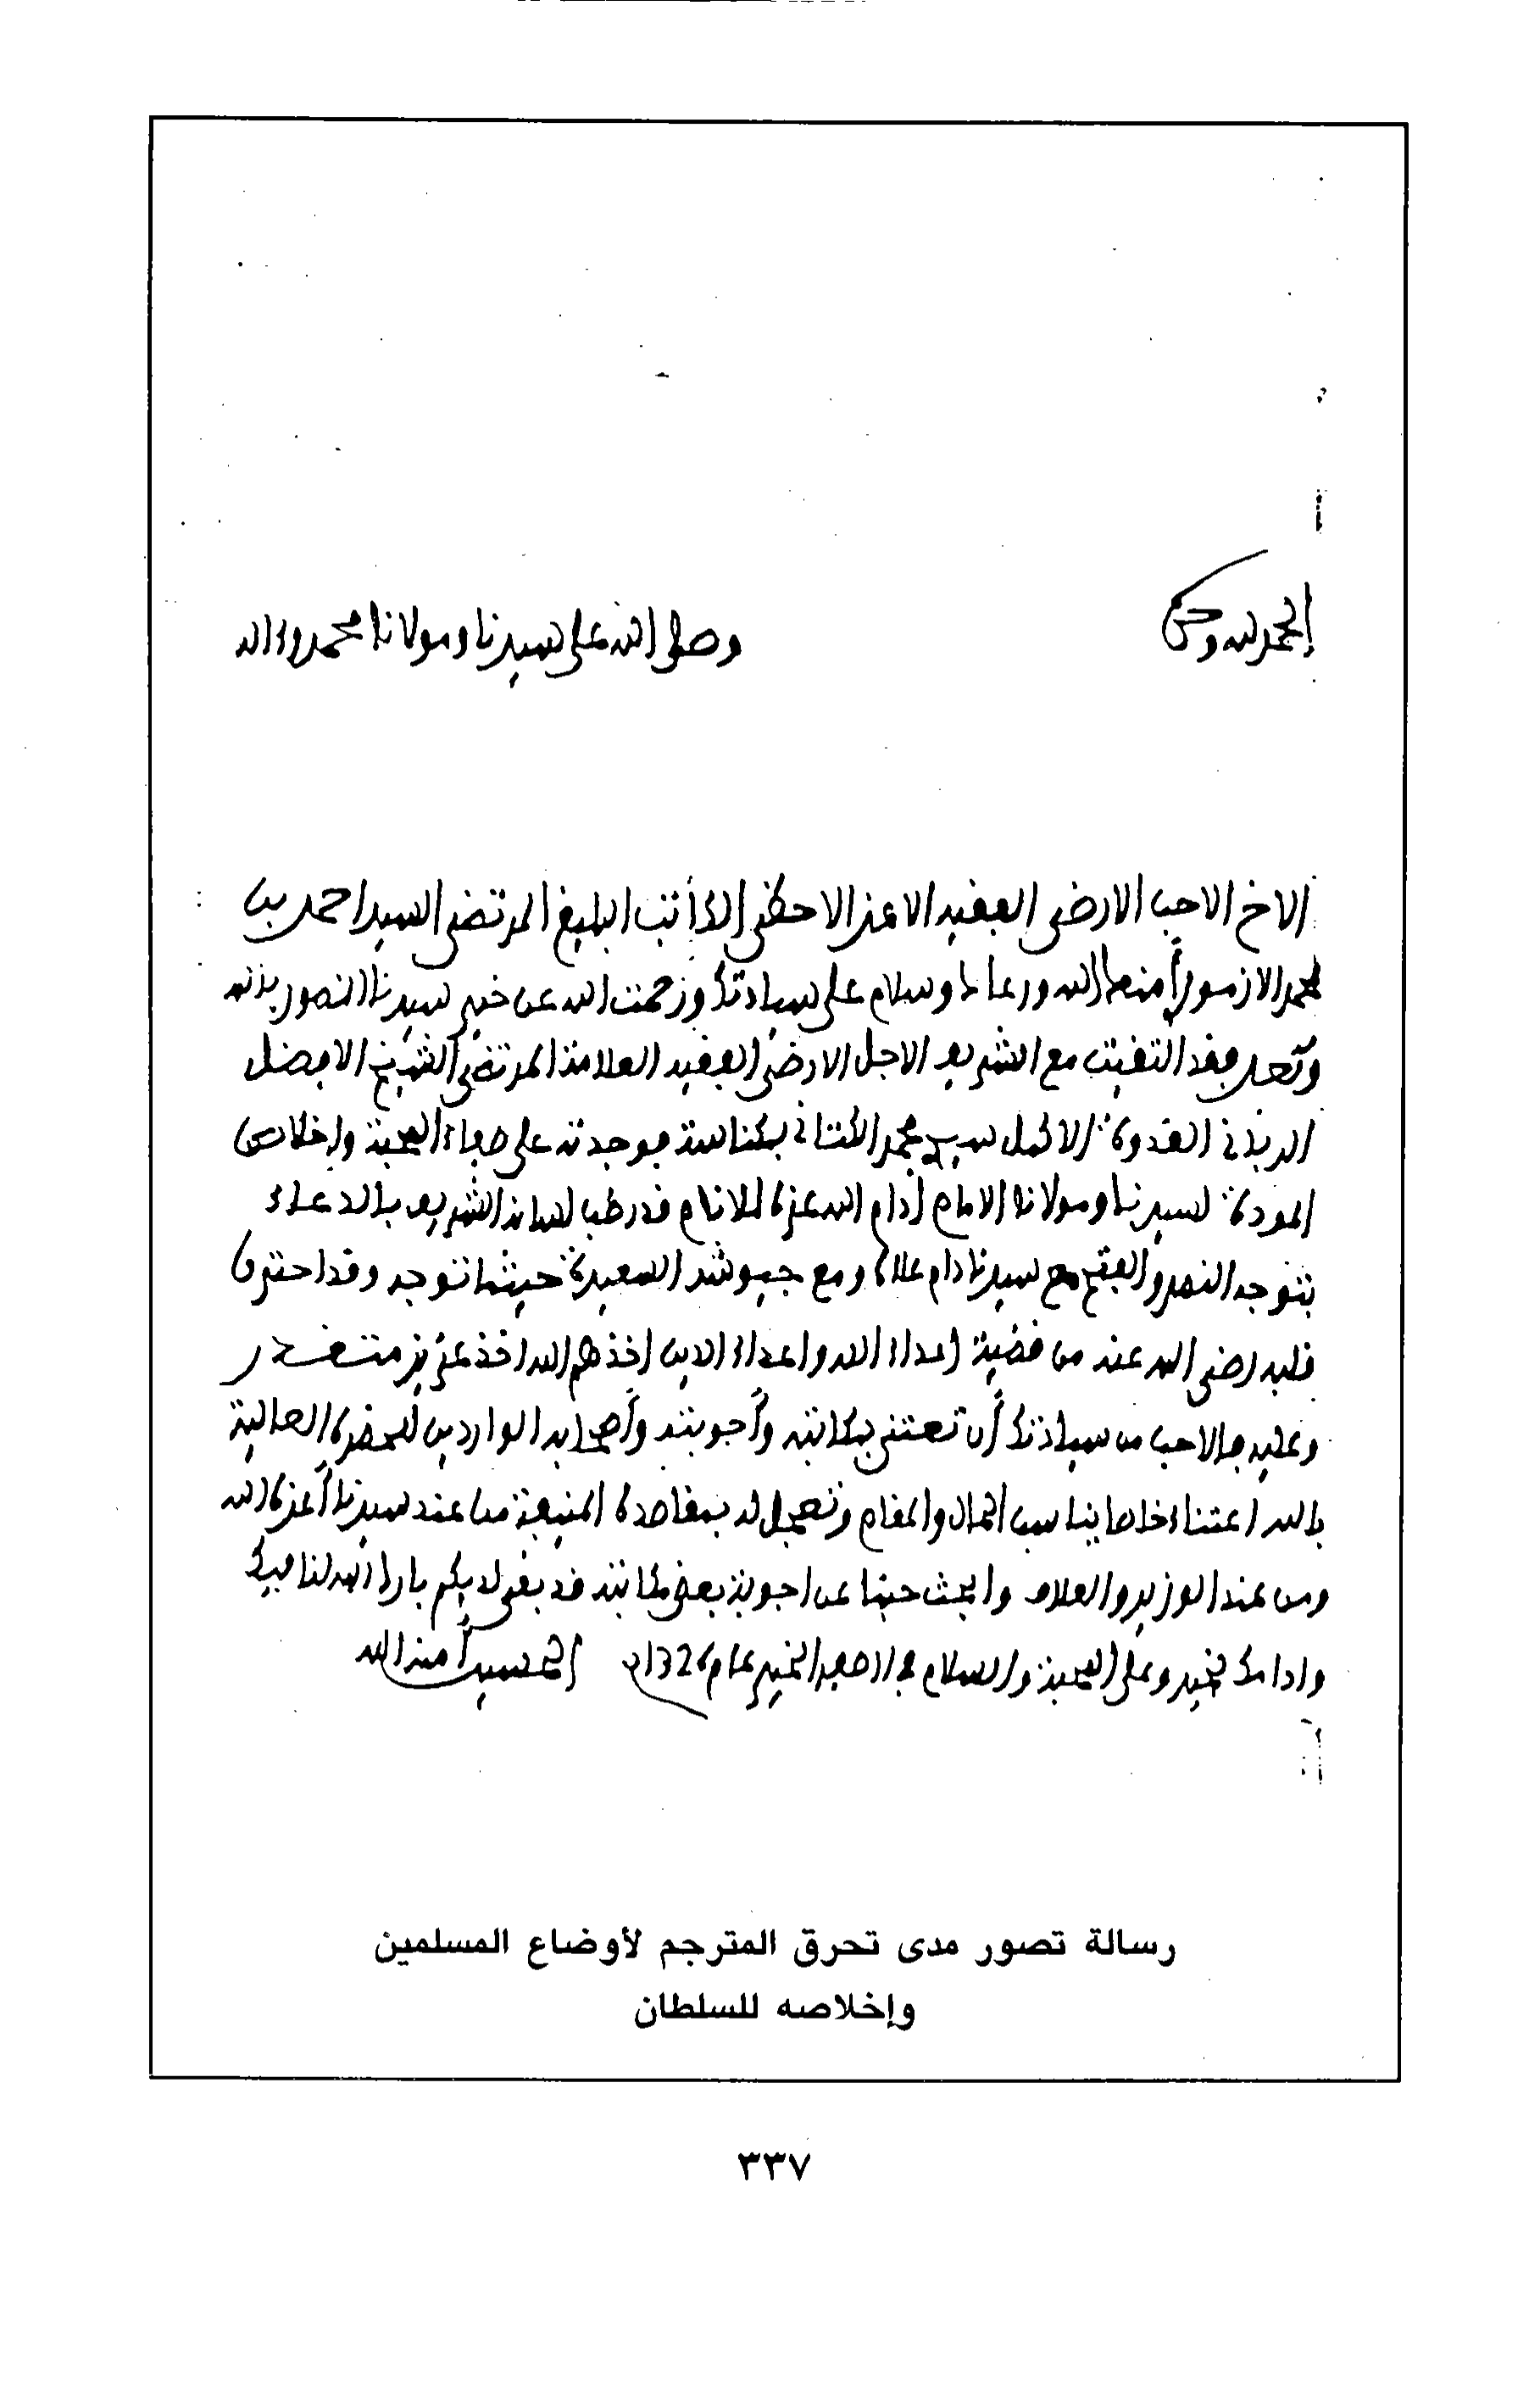 الحمد لله وحده
وصلى الله على سيدنا ومولانا محمد وءاله
الاخ الاحب الارضى الفقيه الاعز الاحظى الكاتب البليغ المرتضى السيد احمد بن
محمد الازموري أمنك الله ورعاك وسلام على سيادتك ورحمت الله عن خير سيدنا المنصور بالله
وبعد فقد التقيت مع الشريف الاجل الارضى الفقيه العلامة المرتضى الشيخ الافضل
الرباني القدوة الاكمل سيدي محمد الكتاني بمكناسة فوجدته على صفاء المحبة وإخلاص
المودة لسيدنا ومولانا الامام أدام الله عزه للانام قد رطب لسانه الشريف بالدعاء
بتوجه النصر والفتح مع سيدنا دام علاه ومع جيوشه السعيدة حيثما توجه وقد احترق
قلبه رضي الله عنه من قضية أعداء الله وأعداء الدين أخذهم الله اخذ عزيز مقتدر
وعليه فالاحب من سيادتك أن تعتني بمكاتبه وأجوبته وأصحابه الواردين للحضرة العالية
بالله اعتناء خاصا يناسب الحال والمقام وتعجل له بمقاصده المنيفة من عند سيدنا أعزه الله
ومن عند الوزير والعلاف وابحث حينا عن اجوبة بعض مكاتبه قد بقي لديكم بارك الله لنا فيك
وادامك بخير وعلى المحبة والسلام في صفر الخير عام 1326 الحسين أمنه الله
رسالة تصور مدى تحرق المترجم لأوضاع المسلمين
وإخلاصه للسلطان
٣٣٧